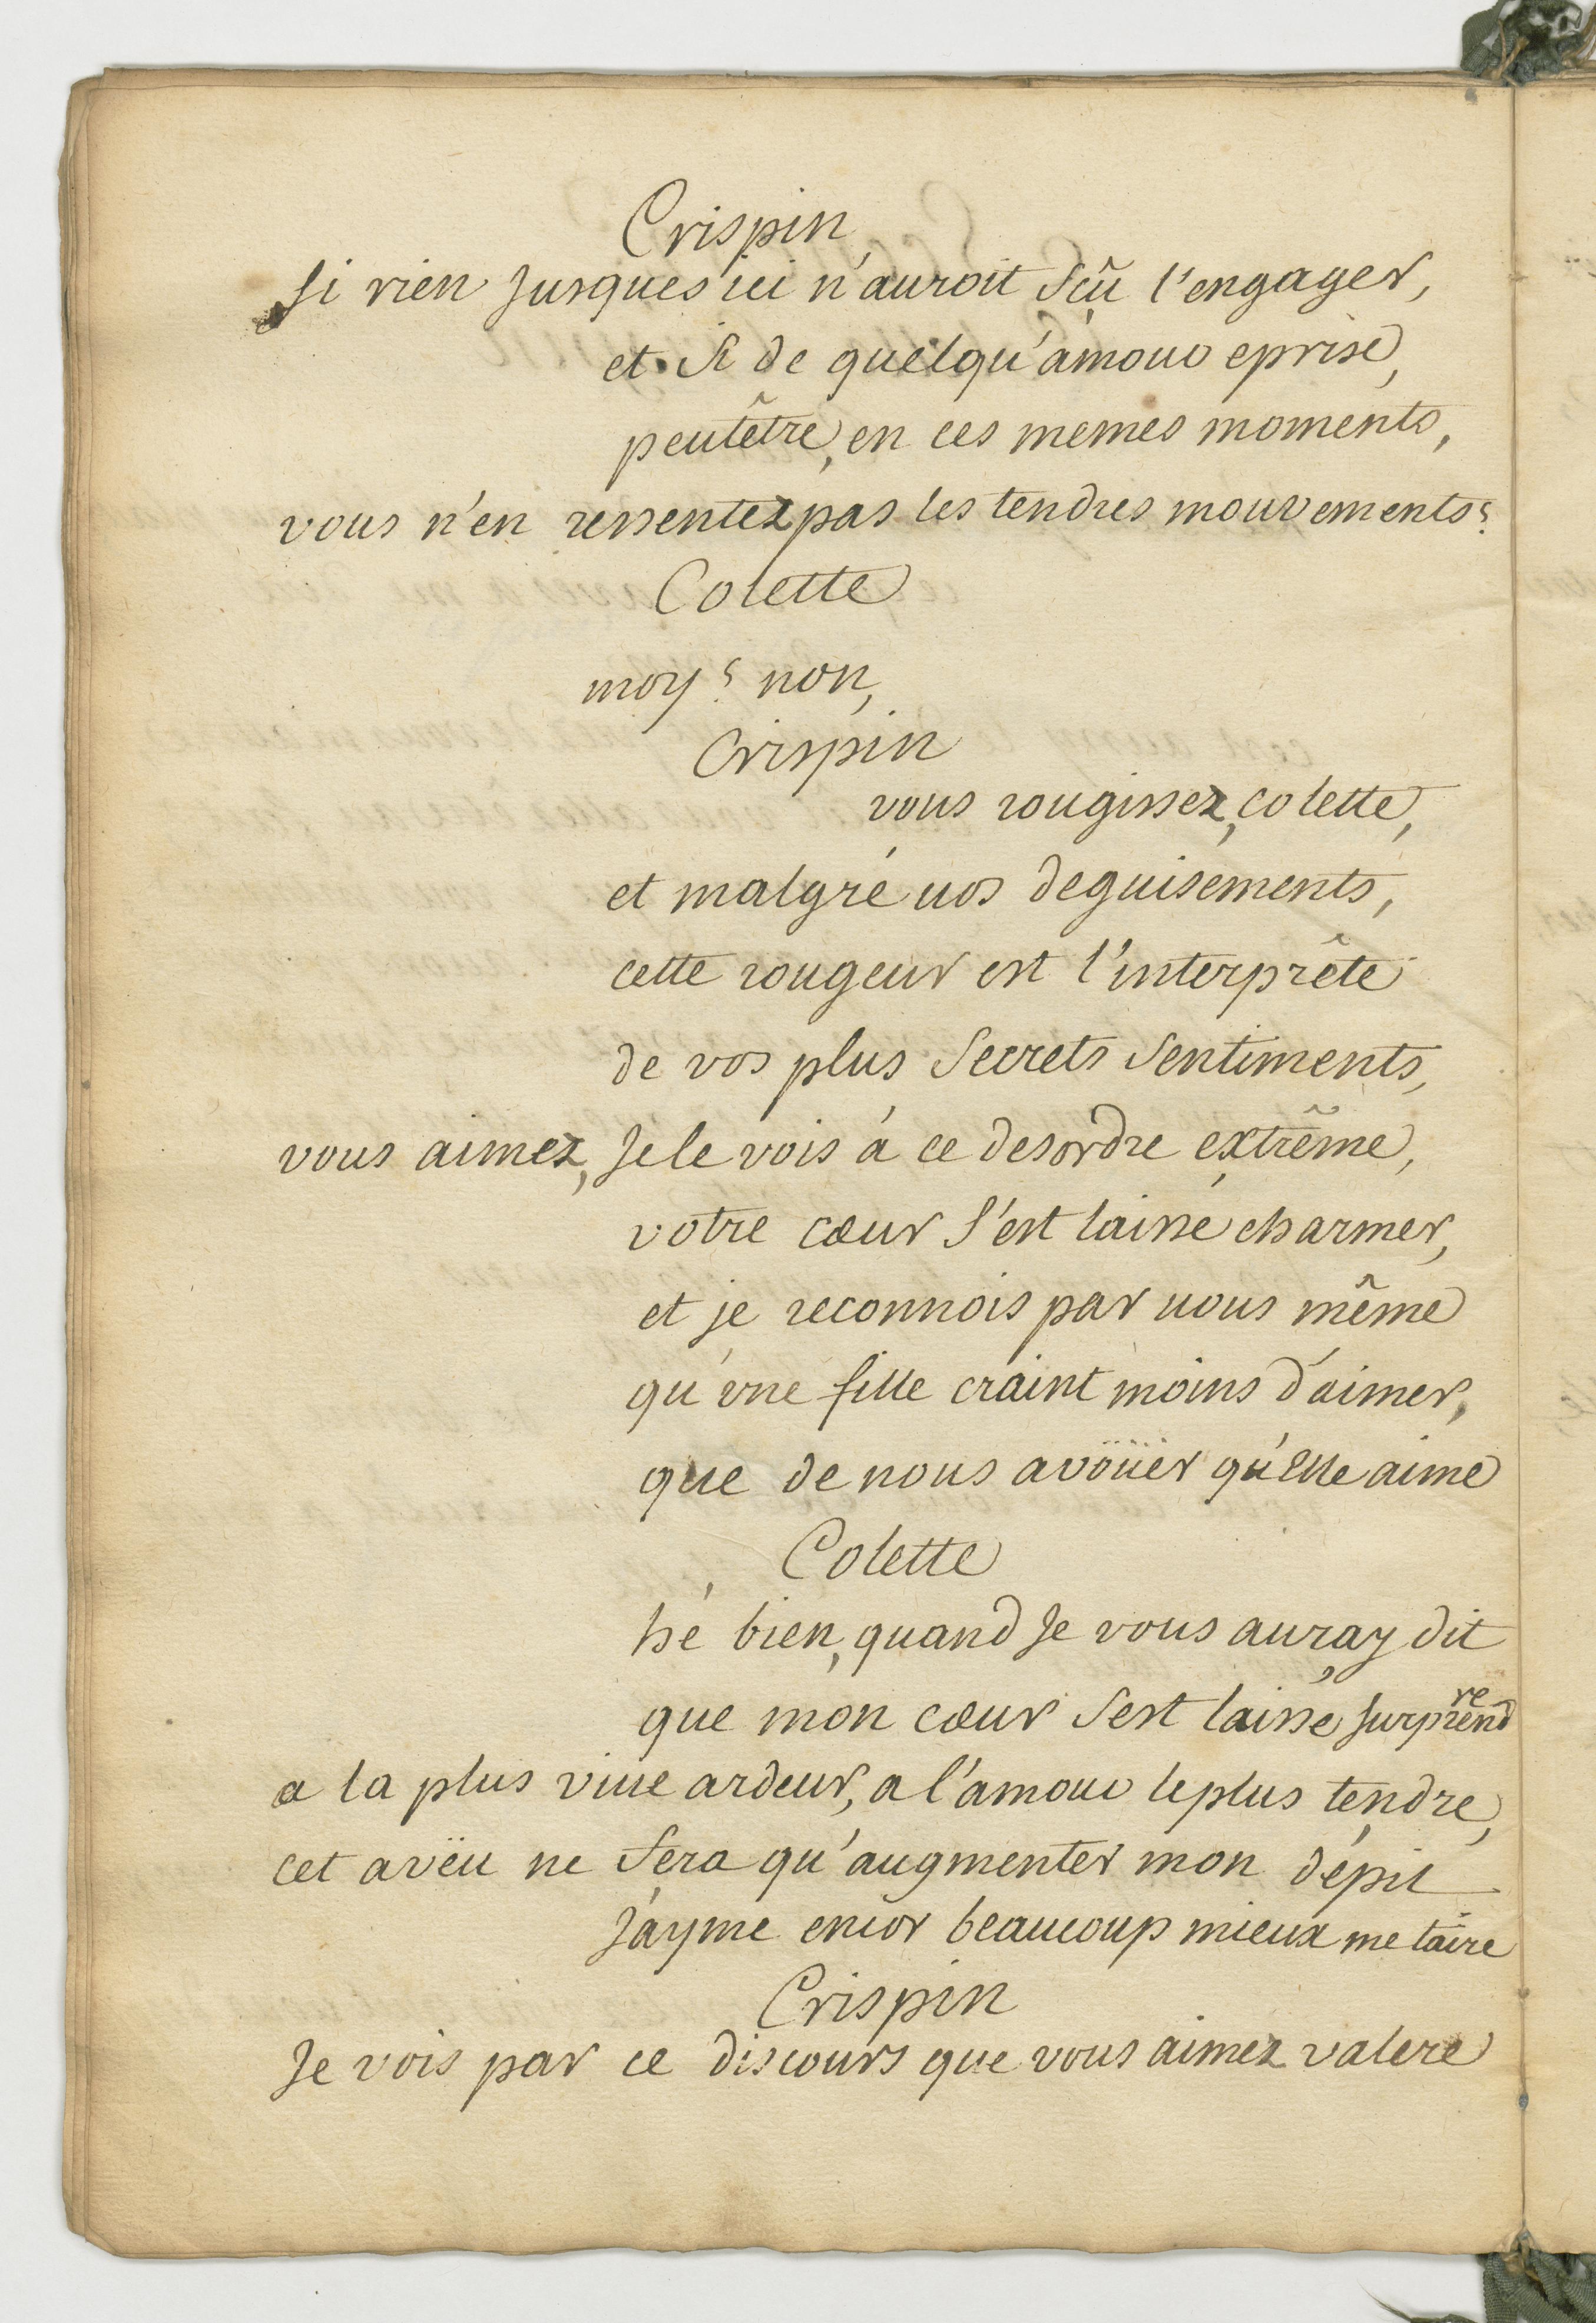 Crispin
Si rien Jusques ici n'auroit Scû l'engager,
et Si de quelqu'amour eprise,
peutêtre, en ces memes moments,
vous n'en ressentez pas les tendres mouvements?
Colette
moy? non,
Crispin
vous rougissez, colette,
et malgré vos deguisements,
cette rougeur est l'interprête
de vos plus Secrets Sentiments,
vous aimez, Je le vois à ce desordre extrême,
votre cœur S'est laissé charmer,
et je reconnois par vous même
qu'vne fille craint moins d'aimer,
que de nous avoüer qu'Elle aime
Colette
hé bien, quand Je vous auray dit
que mon cœur S'est laissé Surprendre
a la plus viue ardeur, a l'amour le plus tendre,
cet avëu ne Sera qu'augmenter mon dépit
J'ayme encor beaucoup mieux me taire
Crispin
Je vois par ce discours que vous aimez valere